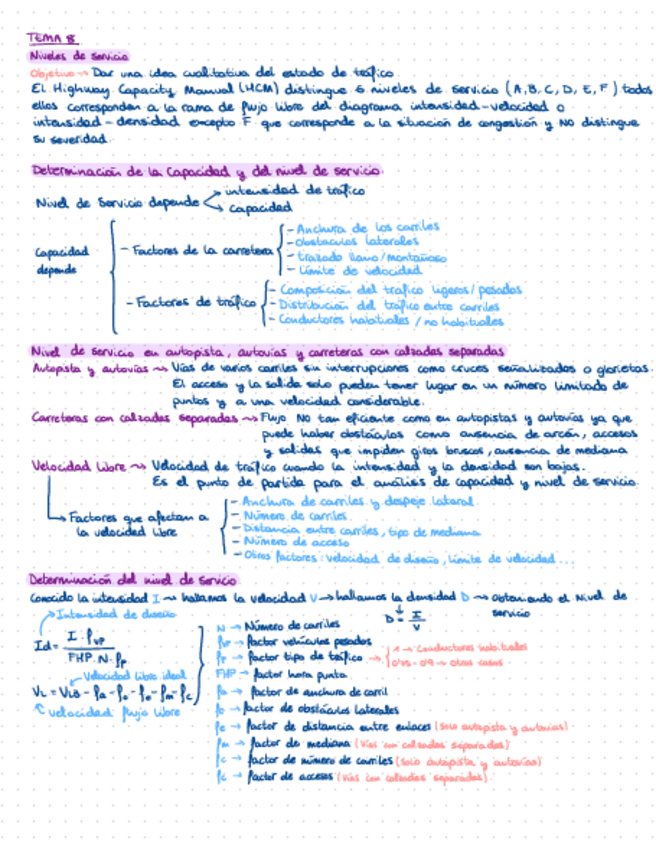 TEMA 8
Niveles de servicio
Objetivo → Dar una idea cualitativa del estado de tráfico
EL Highway Capacity Manual (HCM) distingue 6 niveles de servicio (A, B, C, D, E, F) todos
ellos corresponden a la rama de flujo libre del diagrama intensidad-velocidad o
intensidad-densidad excepto F que corresponde a la situación de congestión y NO distingue
su severidad.
Determinación de la Capacidad y del nivel de servicio.
Nivel de Servicio depende
intensidad de tráfico
capacidad
Capacidad depende
- Factores de la carretera
- Anchura de los carriles
- obstaculos laterales
- trazado llano/montañoso
- Límite de velocidad
- Factores de tráfico
- Composición del trafico ligeros/pesados
- Distribución del tráfico entre carriles
- Conductores habituales / no habituales
Nivel de servicio en autopista, autovias y carreteras con calzadas separadas
Autopista y autovias → Vías de varios carriles sin interrupciones como cruces señalizados o glorietas.
El acceso y la salida solo pueden tener lugar en un número limitado de
puntos y a una velocidad considerable.
Carreteras con calzadas separadas → Flujo NO tan eficiente como en autopistas y autovias ya que
puede haber obstáculos como ausencia de arcén, accesos
y salidas que impiden giros bruscos, ausencia de mediana
Velocidad libre → Velocidad de tráfico cuando la intensidad y la densidad son bajas.
Es el punto de partida para el análisis de capacidad y nivel de servicio
Factores que afectan a
la velocidad libre
- Anchura de carriles y despeje lateral
- Número de carriles
- Distancia entre carriles, tipo de mediana
- Número de acceso
- Otros factores: velocidad de diseño, límite de velocidad ...
Determinación del nivel de servicio
Conocido la intensidad I → hallamos la velocidad V → hallamos la densidad D → obteniendo el Nivel de
servicio
D = I / V
Intensidad de diseño
Id = I · fvp / FHP · N · fp
Velocidad libre ideal
VL = VLB - fa - fo - fe - fm - fc
velocidad flujo libre
N → Número de carriles
factor vehículos pesados
factor tipo de tráfico → 1 → Conductores habituales
otros casos
FHP → factor hora punta
fa → factor de anchura de carril
fo → factor de obstáculos laterales
fe → factor de distancia entre enlaces (solo autopista y autovias).
fm → factor de mediana (vías con calzadas separadas)
fc → factor de número de carriles (solo autopista y autovias)
fc → factor de accesos (vías con calzadas separadas).